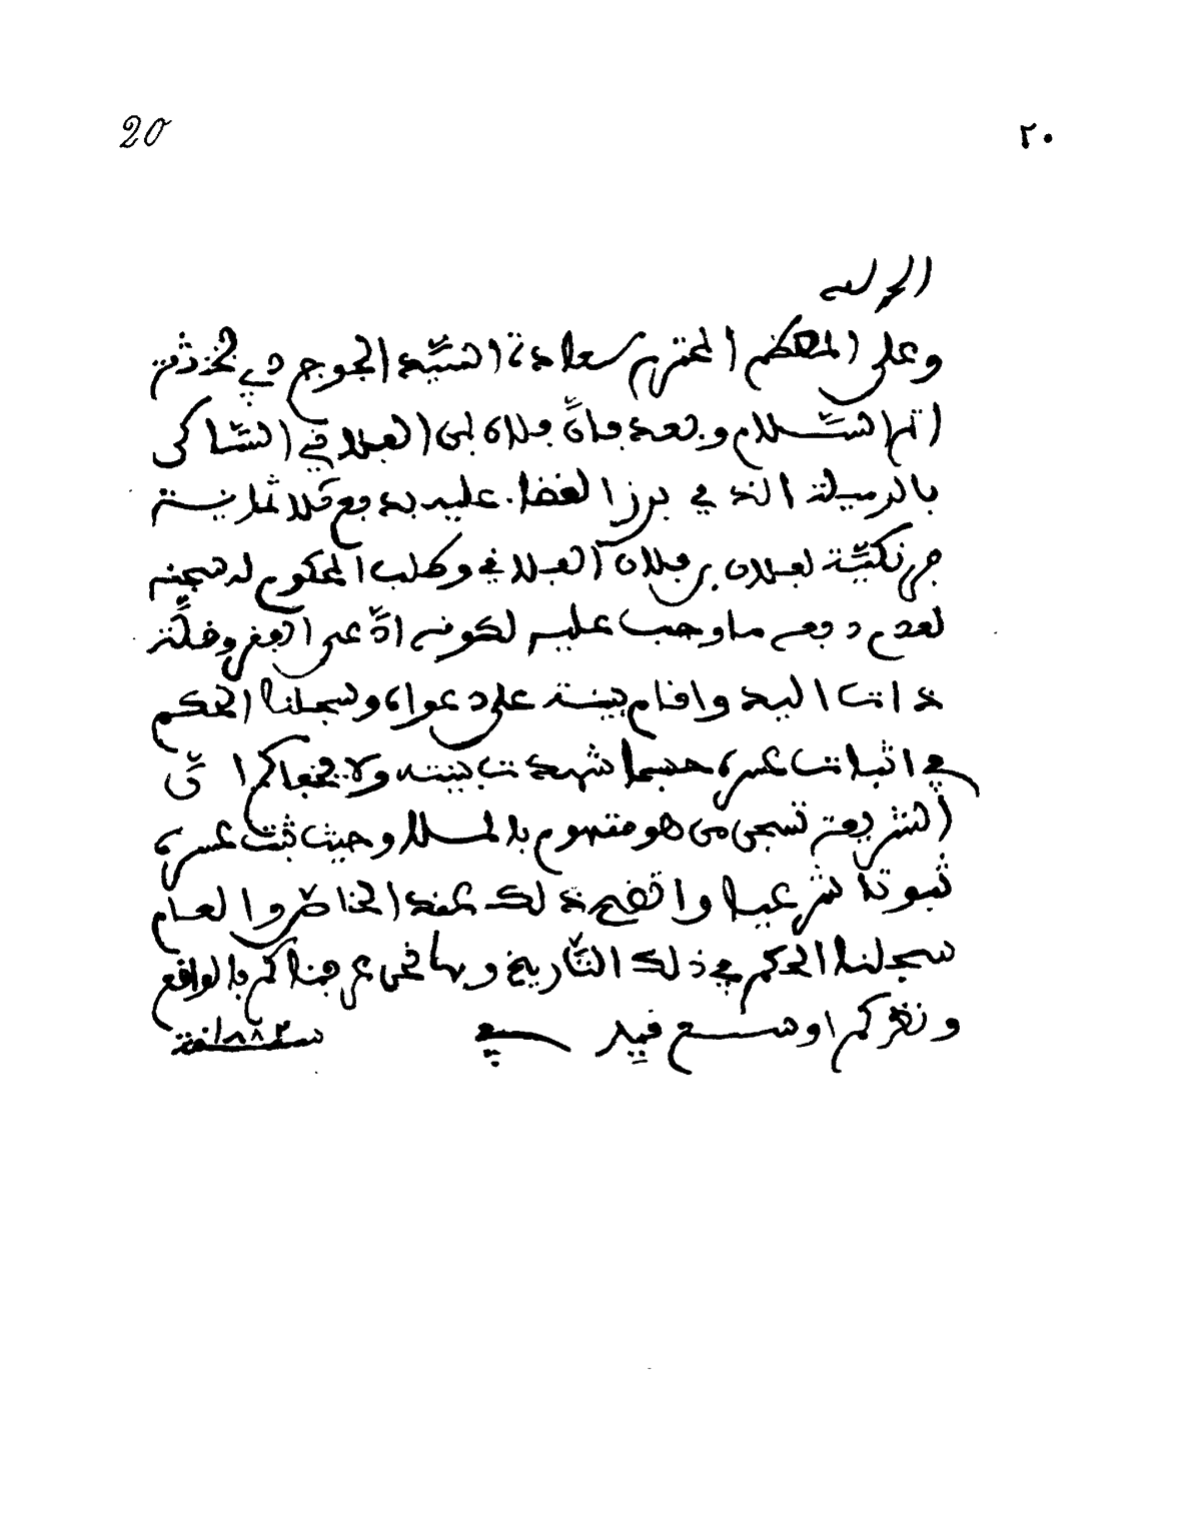 20
٢٠
الحمد لله
وعلى المعظم المحترم سعادة السَّيِّد الجوج دپي بحزدڢة
اتم السَّلام وبعد ڢانَّ ڢلان بن الڢلاني السَّاكن
بالرميلة الذي برز القضا. عليه بدڢع ثلاثمائة
ڢرنكيَّة لڢلان بن ڢلان الڢلاني وطلب المحكوم له سجنه
لعدم دڢعه ما وجب عليه لكونه ادَّعى الڢقر وقلَّة
ذات اليد واقام بينة على دعواه وسجلنا الحكم
ڢي اثبات عسره حسبما شهدت بينته ولا يخڢاكم انَّ
الشريعة تسجن من هو متهوم بالملا وحيث ثبت عسره
ثبوتا شرعيا واتضح ذلك عند الخاصّ والعام
سجلنا الحكم ڢي ذلك التَّاريخ وها نحن عرڢناكم بالواقع
ونظركم اوسع فيه ڢي سنة ١٨٨٢